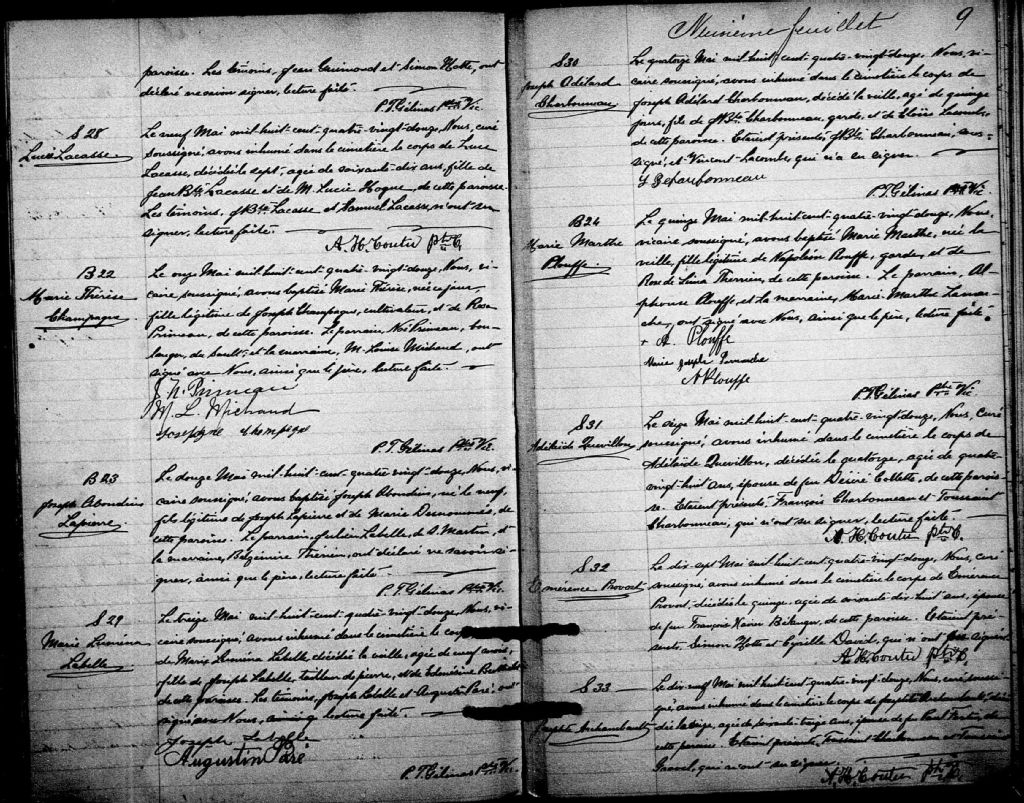 paroisse. Les témoins, Jean Guimond et Simon Hotte, ont
déclaré ne savoir signer, lecture faite.
P. T. Gélinas Ptre Vic.
S 28
Luce Lacasse
Le neuf Mai mil-huit-cent-quatre-vingt-douze, Nous, curé
soussigné, avons inhumé dans le cimetière le corps de Luce
Lacasse, décédée le sept, agée de soixante-dix ans, fille de
Jean Bte Lacasse et de M. Lucie Hogue, de cette paroisse.
Les témoins, J.Bte Lacasse et Samuel Lacasse, n'ont su
signer, lecture faite.
A. H. Coutu ptre C.
B 22
Marie Thérèse
Champagne
Le onze Mai mil-huit-cent-quatre-vingt-douze, Nous, vi-
caire, soussigné, avons baptisé Marie Thérèse, née ce jour,
fille légitime de Joseph Champagne, cultivateur, et de Rose
Primeau, de cette paroisse. Le parrain, Noé Primeau, bou-
langer, du Sault; et la marraine, M. Louise Michaud, ont
signé avec Nous, ainsi que le père, lecture faite.
N. Primeau
M. L. Michaud
P. T. Gélinas Ptre Vic.
B 23
Joseph Abondius
Lapierre
Le douze Mai mil-huit-cent-quatre-vingt-douze, Nous, vi-
caire soussigné, avons baptisé Joseph Abondius, né le neuf,
fils légitime de Joseph Lapierre et de Marie Desnommés, de
cette paroisse. Le parrain, Julien Labelle, de S. Martin, et
la marraine, Belzémire Thérien, ont déclaré ne savoir si-
gner, ainsi que le père, lecture faite.
P. T. Gélinas Ptre Vic.
S 29
Marie
Labelle
Le treize Mai mil-huit-cent-quatre-vingt-douze, Nous, vi-
caire soussigné, avons inhumé dans le cimetière le corps
de Marie Labelle, décédée la veille, agée de neuf mois,
fille de Joseph Labelle, tailleur de pierre, et de
de cette paroisse. Les témoins, Joseph Labelle et Augustin Paré, ont
signé avec Nous, lecture faite.
Joseph Labelle
Augustin Paré
P. T. Gélinas Ptre Vic.
Neuvième feuillet
9
S 30
Joseph Adélard
Charbonneau
Le quatorze Mai mil-huit-cent-quatre-vingt-douze, Nous, vi-
caire soussigné, avons inhumé dans le cimetière le corps de
Joseph Adélard Charbonneau, décédé la veille, agé de quinze
jours, fils de J.Bte Charbonneau, garde, et de Lacombe,
de cette paroisse. Etaient présents, J.Bte Charbonneau, sous-
signé, et Vincent Lacombe, qui n'a su signer.
J B charbonneau
P. T. Gélinas Ptre Vic.
B 24
Marie Marthe
Plouffe
Le quinze Mai mil-huit-cent-quatre-vingt-douze, Nous,
vicaire soussigné, avons baptisé Marie Marthe, née la
veille, fille légitime de Napoléon Plouffe, garde, et de
Rose de Lima Therrien, de cette paroisse. Le parrain, Al-
phonse Plouffe, et la marraine, Marie Marthe Lamar-
che, ont signé avec Nous, ainsi que le père, lecture faite.
A. Plouffe
Marie Joseph
N Plouffe
P. T. Gélinas Ptre Vic.
S 31
Adélaïde Quevillon
Le seize Mai mil-huit-cent-quatre-vingt-douze, Nous, Curé
soussigné, avons inhumé dans le cimetière le corps de
Adélaïde Quevillon, décédée le quatorze, agée de quatre-
vingt-huit ans, épouse de feu Désiré Collette, de cette parois-
se. Etaient présents, François Charbonneau et Toussaint
Charbonneau, qui n'ont su signer, lecture faite.
A. H. Coutu ptre C.
S 32
Emérence Provost
Le dix-sept Mai mil-huit-cent-quatre-vingt-douze, Nous, curé
soussigné, avons inhumé dans le cimetière le corps de Emerence
Provost, décédée le quinze, agée de soixante-dix-huit ans, épouse
de feu François Xavier Bélanger, de cette paroisse. Etaient pré-
sents, Simon Hotte et Cyrille David, qui n'ont pas signé.
A. H. Coutu ptre C.
S 33
Josephte Archambault
Le dix-neuf Mai mil-huit-cent-quatre-vingt-douze, Nous, curé soussi-
gné, avons inhumé dans le cimetière le corps de Josephte Archambault, décé-
dée le seize, agée de soixante-treize ans, épouse de feu Paul de
cette paroisse. Etaient présents, Toussaint Charbonneau et
Gravel, qui n'ont su signer.
A. H. Coutu ptre C.